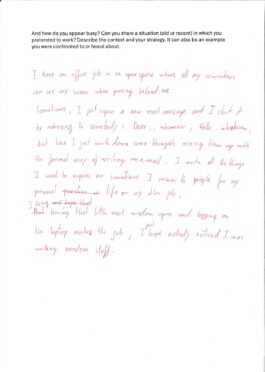 And how do you appear busy? Can you share a situation (old or recent) in which you
pretended to work? Describe the context and your strategy. It can also be an example
you were confronted to or heard about.
I have an office job in an open space where all my coworkers
can see my screen when passing behind me.
Sometimes, I just open a new mail message and I start it
by adressing to somebody: Dear... whomever, Hello... whomever,
but then I just write down some thoughts mixing them up with
the formal ways of writing an e-mail. I write all the things
I need to express or sometimes I answer to people for my
personal life or my other job.
I having that little mail window open and tapping on
the laptop makes the job, I just hope nobody noticed I was
writing random stuff.